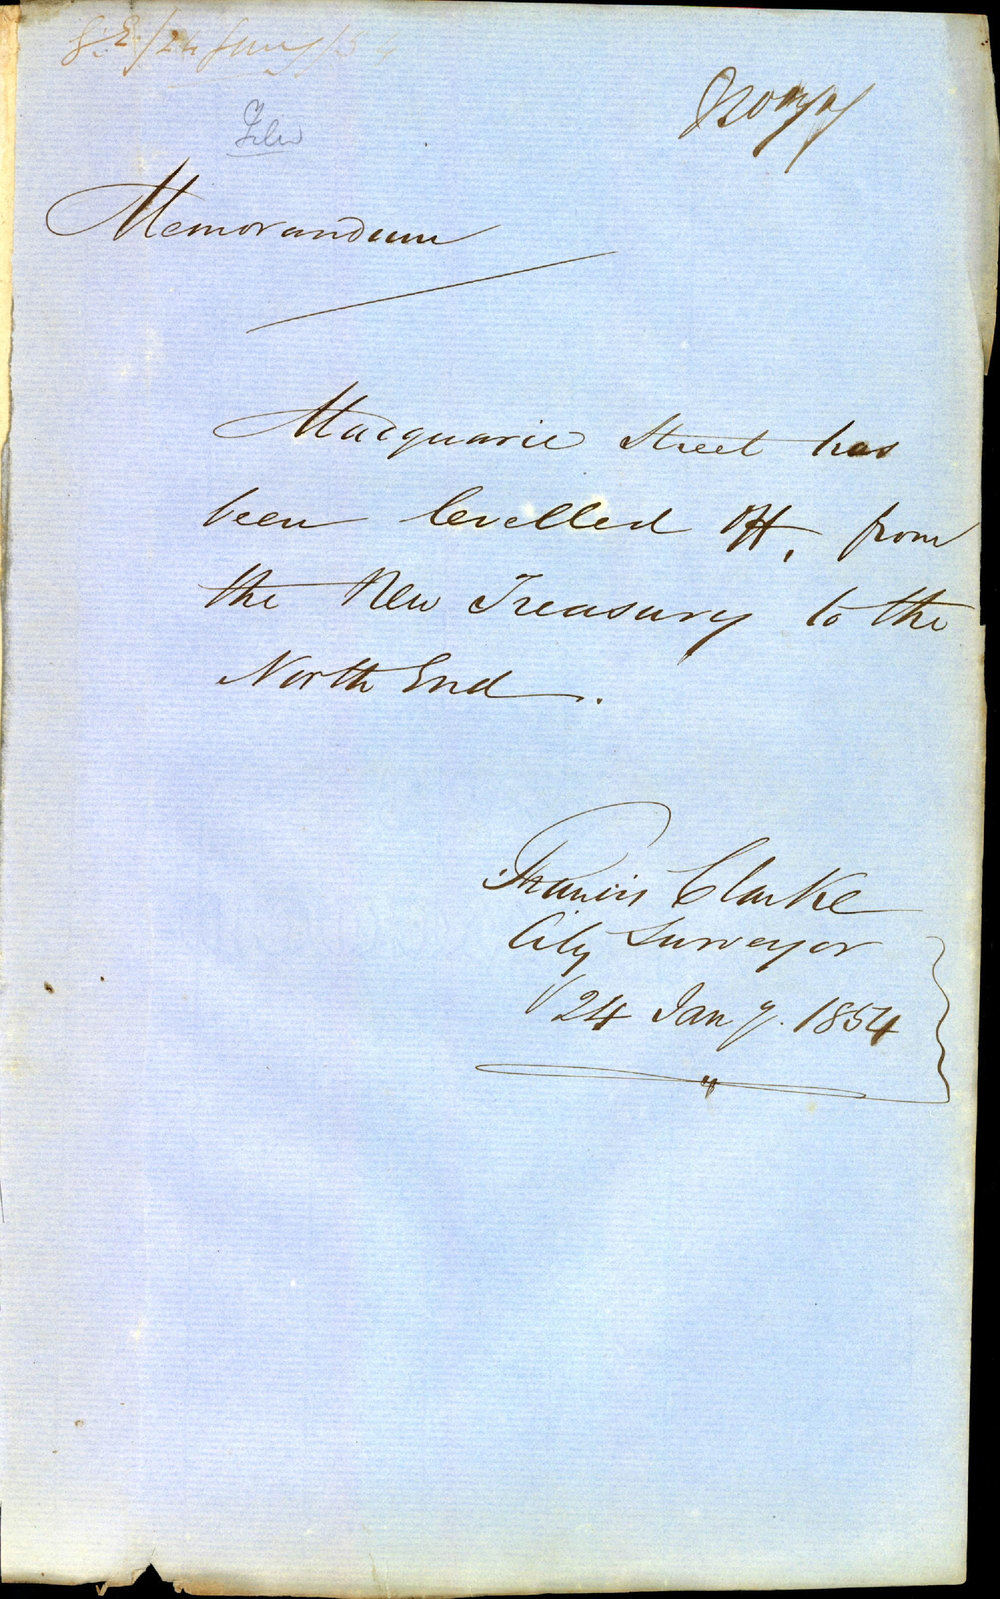 Memorandum
Macquarie Street has
been levelled off, from
the New Treasury to the
North End.
Francis Clarke
City Surveyor
24 Jany. 1854